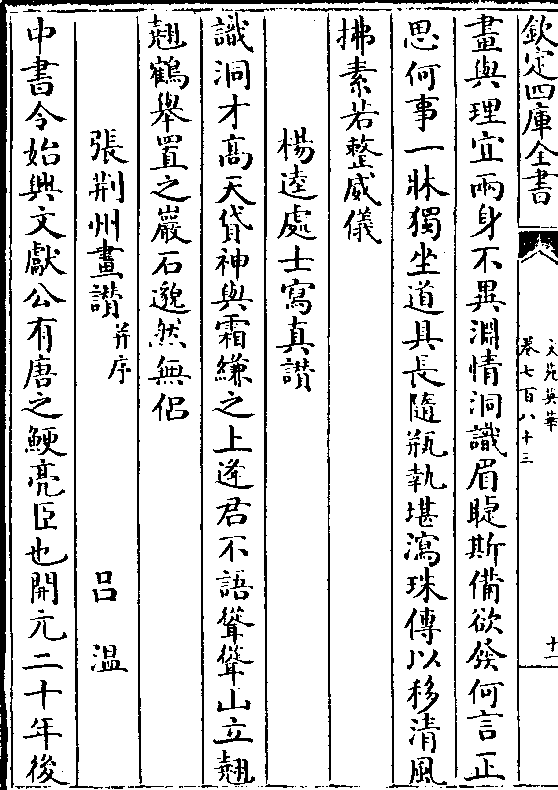 欽定四庫全書
文苑英華
卷七百八十三
十一
畫與理宜兩身不異淵情洞識眉睫斯備欲發何言正
思何事一牀獨坐道具長隨瓶執堪瀉珠傳以移清風
拂素若整威儀
楊逵處士寫真讃
識洞才高天貸神與霜縑之上逢君不語聳聳山立翹
翹鶴舉置之巖石邈然無侶
張荆州畫讃并序
吕溫
中書令始興文獻公有唐之鯁亮臣也開元二十年後